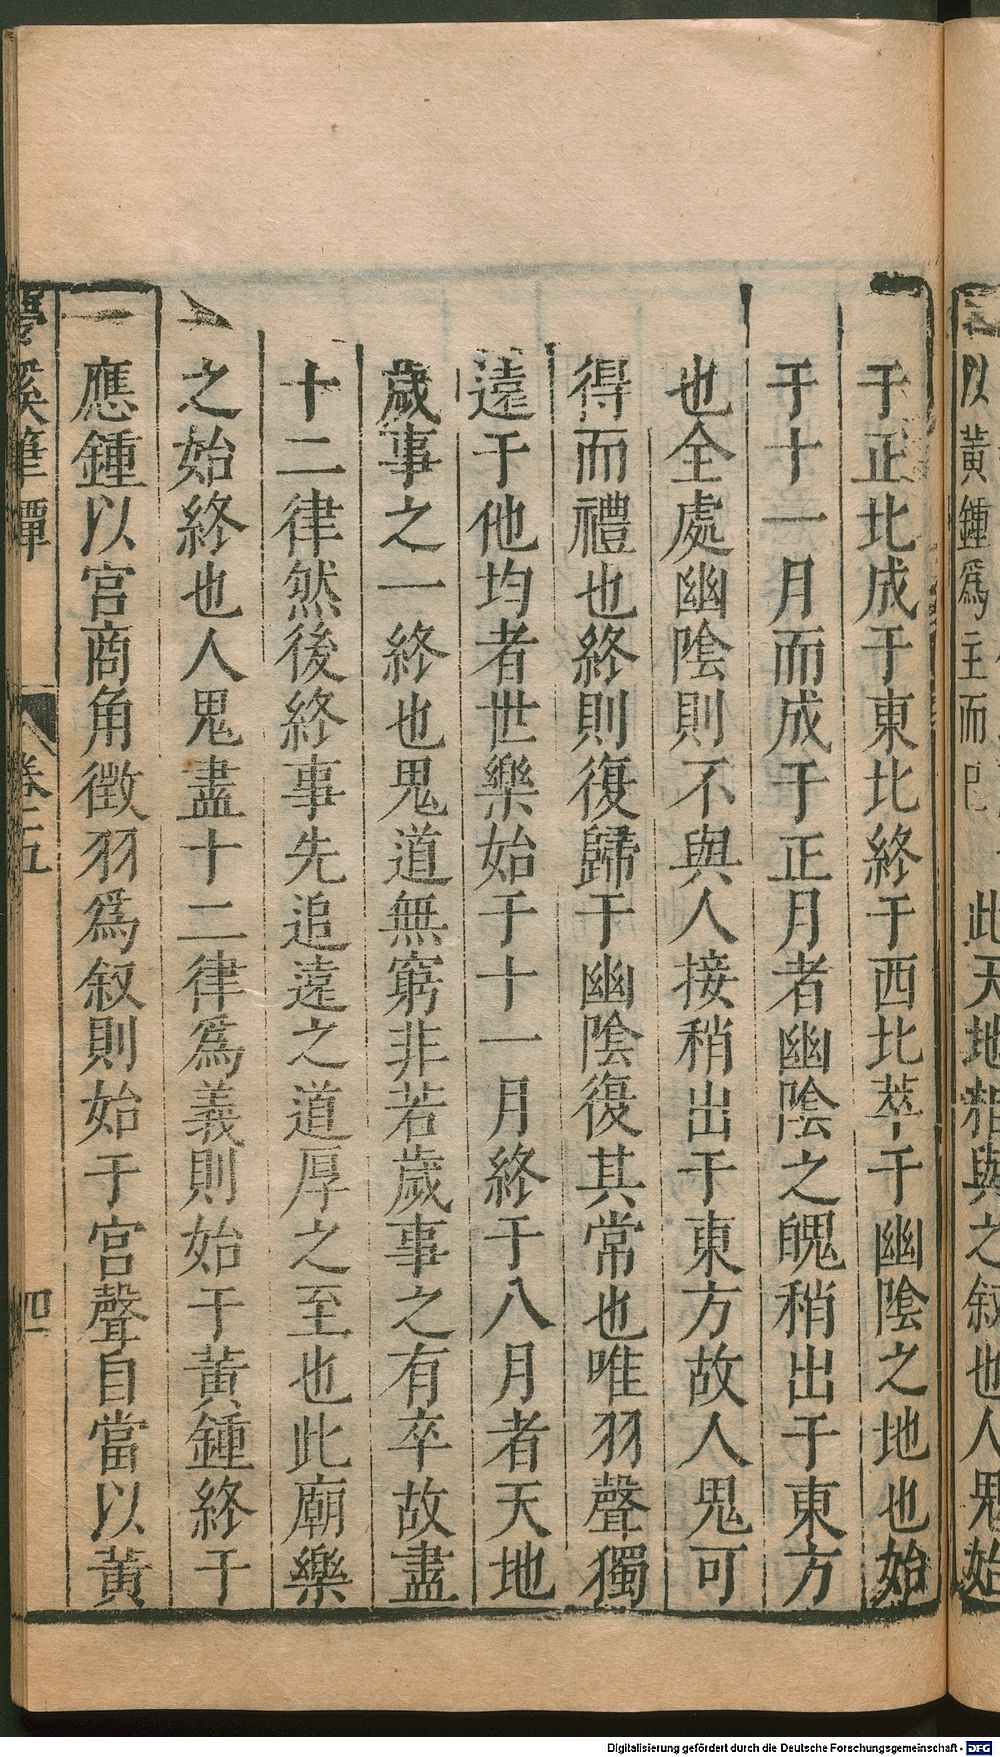 以黃鍾爲主而已 此天地相與之叙也人鬼始
于正北成于東北終于西北萃于幽陰之地也始
于十一月而成于正月者幽陰之魄稍出于東方
也全處幽陰則不與人接稍出于東方故人鬼可
得而禮也終則復歸于幽陰復其常也唯羽聲獨
遠于他均者世樂始于十一月終于八月者天地
歲事之一終也鬼道無窮非若歲事之有卒故盡
十二律然後終事先追遠之道厚之至也此廟樂
之始終也人鬼盡十二律爲義則始于黃鍾終于
應鍾以宮商角徵羽爲叙則始于宮聲自當以黃
夢溪筆譚 卷五 四
Digitalisierung gefördert durch die Deutsche Forschungsgemeinschaft - DFG